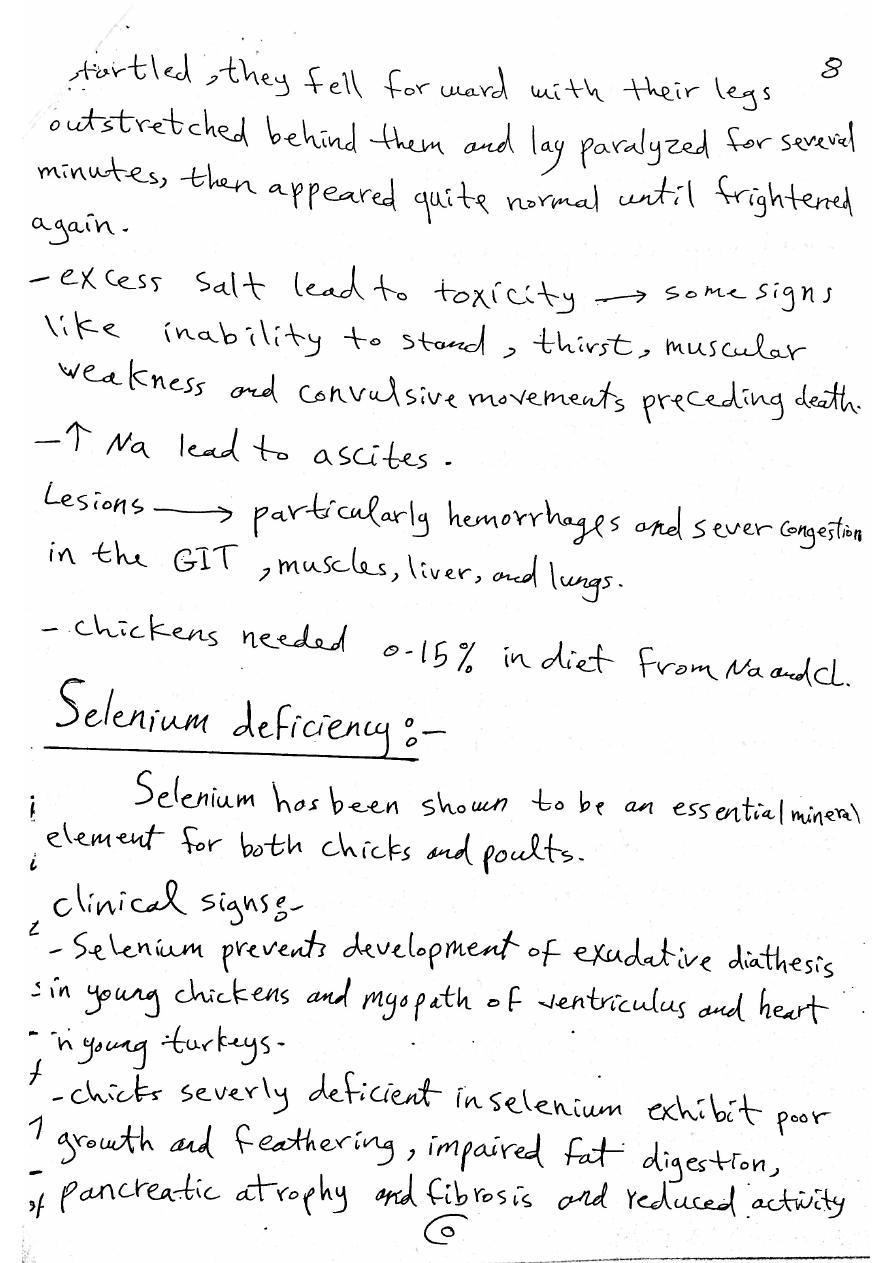 startled, they fell forward with their legs
8
outstretched behind them and lay paralyzed for several
minutes, then appeared quite normal until frightened
again.
- excess salt lead to toxicity → some signs
like inability to stand, thirst, muscular
weakness and convulsive movements preceding death.
- ↑ Na lead to ascites.
Lesions → particularly hemorrhages and sever congestion
in the GIT, muscles, liver, and lungs.
- chickens needed 0-15% in diet from Na and Cl.
Selenium deficiency:-
Selenium has been shown to be an essential mineral
element for both chicks and poults.
clinical signs:-
- Selenium prevents development of exudative diathesis
in young chickens and myopath of ventriculus and heart
in young turkeys.
- chicks severly deficient in selenium exhibit poor
growth and feathering, impaired fat digestion,
pancreatic atrophy and fibrosis and reduced activity